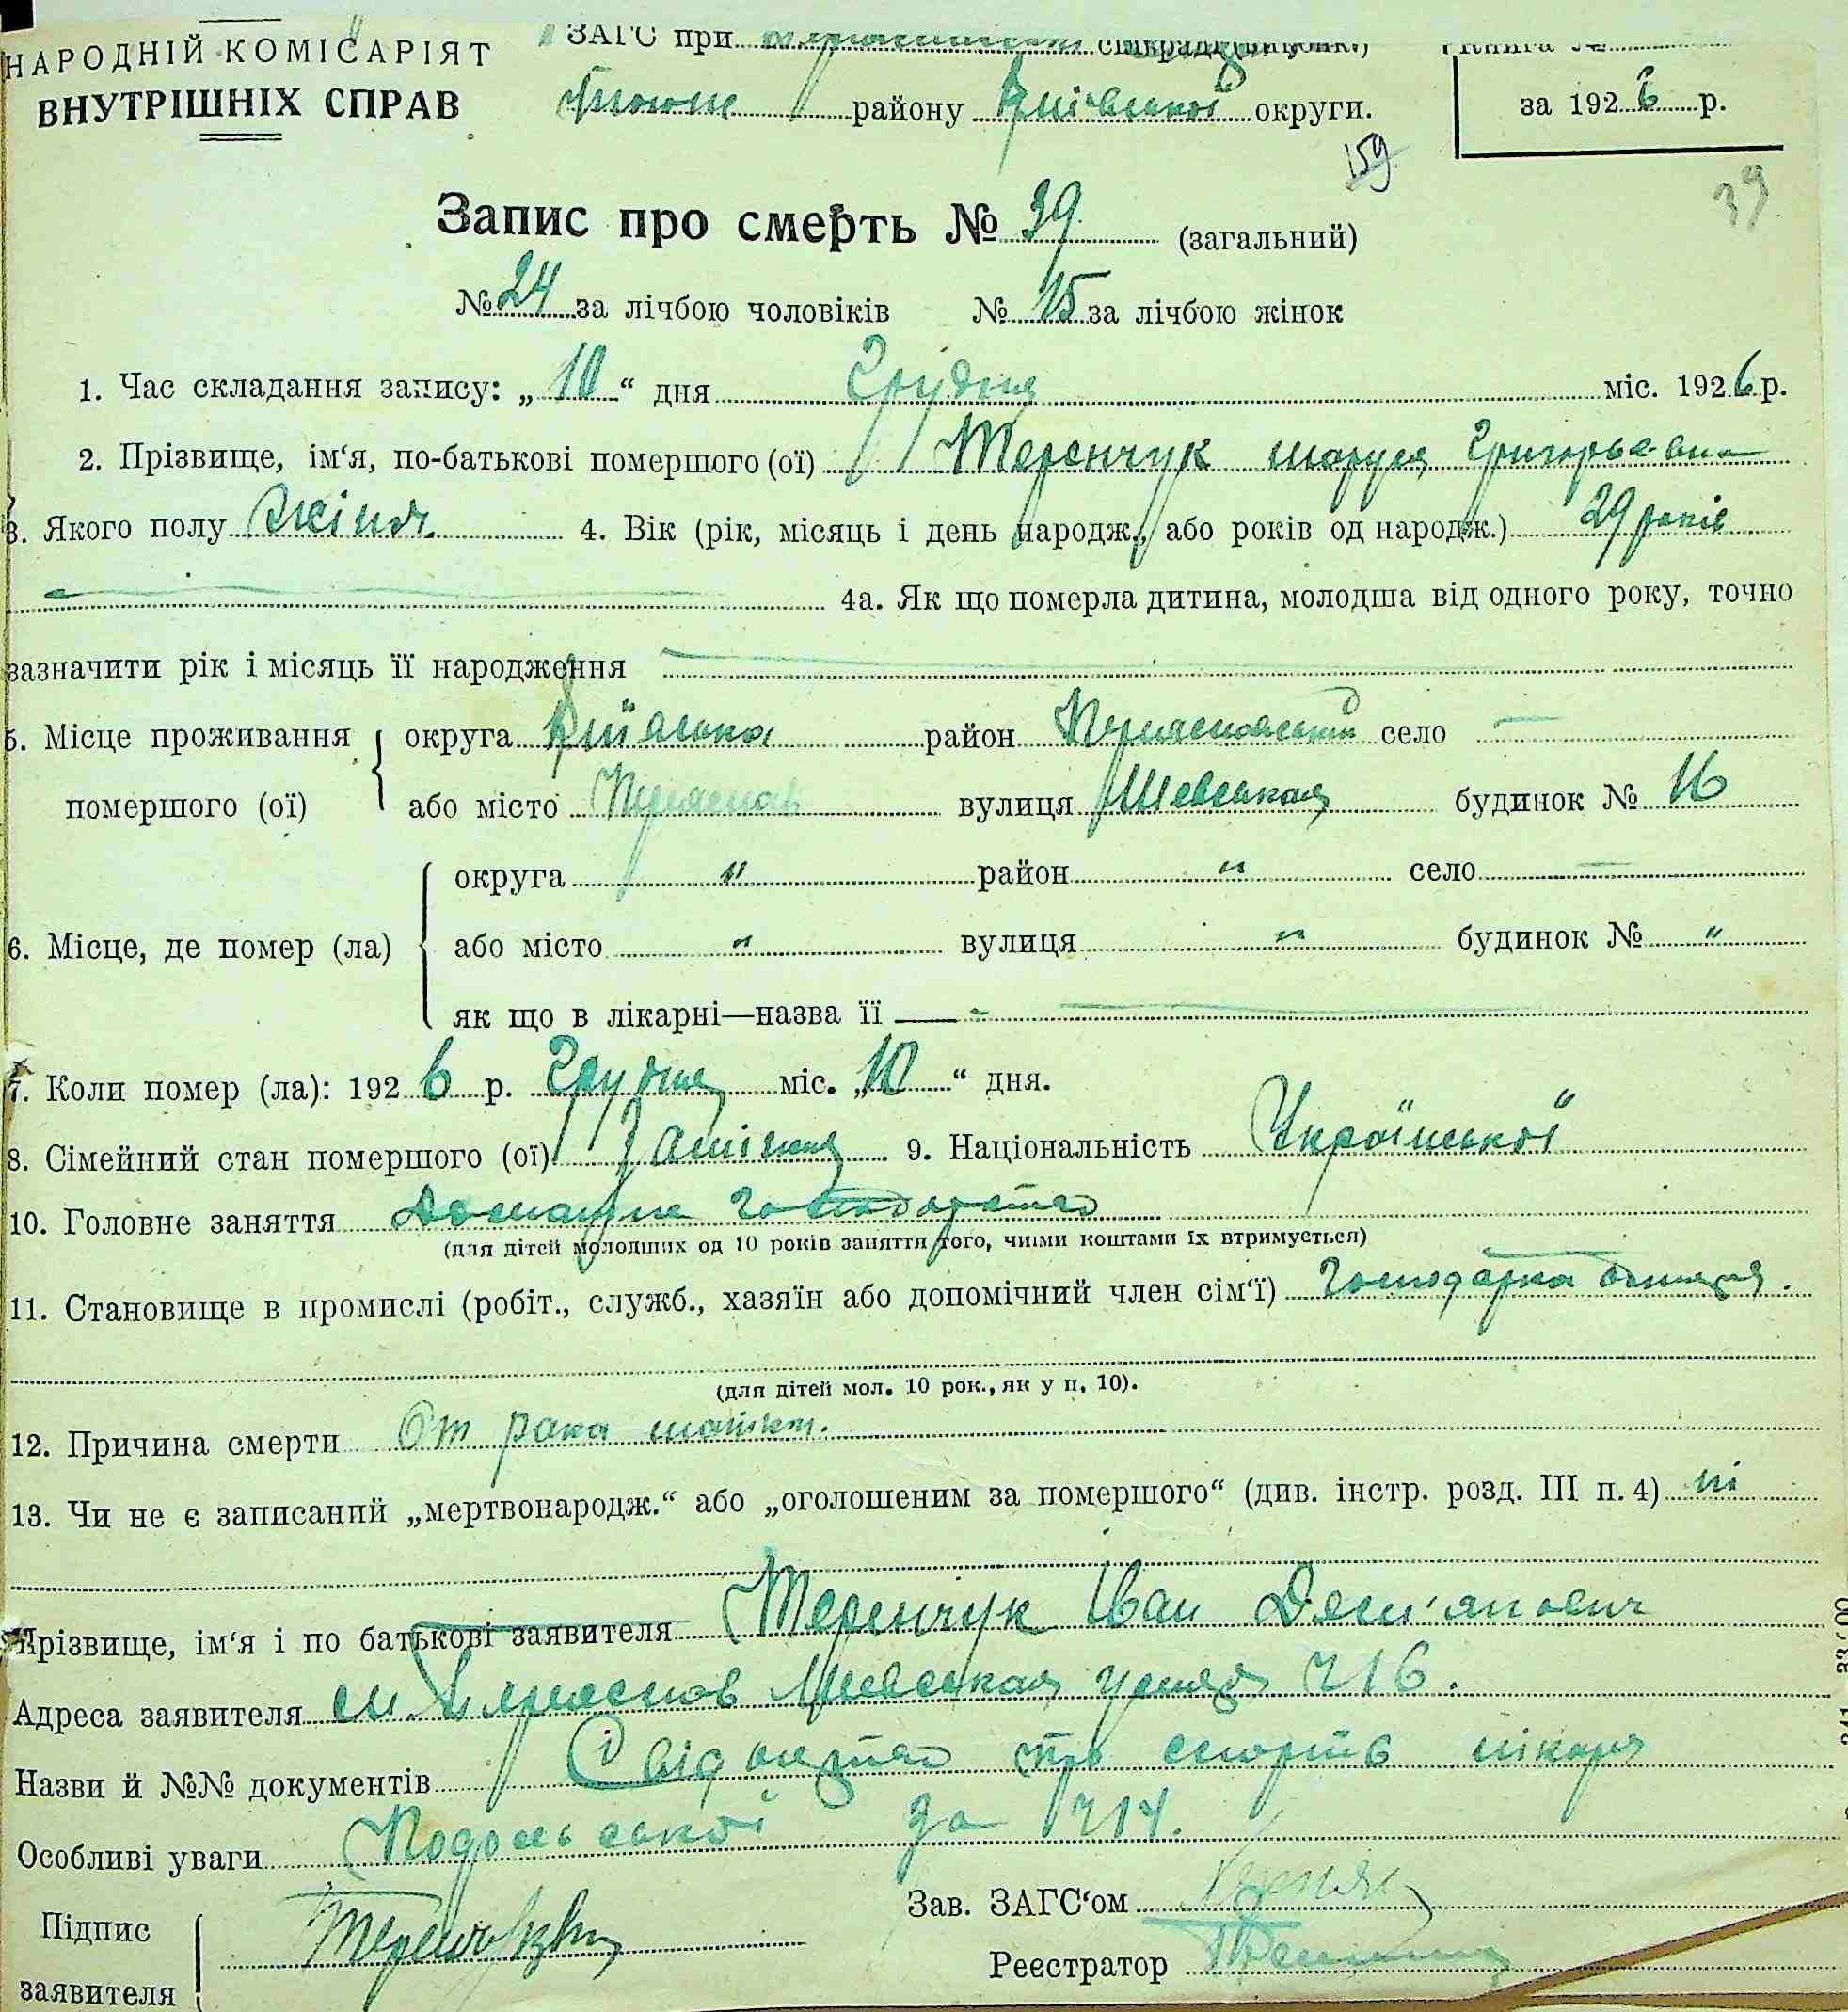 НАРОДНІЙ КОМІСАРІЯТ
ВНУТРІШНІХ СПРАВ
ЗАГС при
району Київської округи.
Книга №
за 1926 р.
159
39
Запис про смерть № 39 (загальний)
№ 24 за лічбою чоловіків № 15 за лічбою жінок
1. Час складання запису: „10“ дня Грудня міс. 1926 р.
2. Прізвище, ім‘я, по-батькові помершого (ої) Теренчук Маруся Григорьевна
3. Якого полу жіноч. 4. Вік (рік, місяць і день народж., або років од народж.) 29 років
4а. Як що померла дитина, молодша від одного року, точно
зазначити рік і місяць її народження
5. Місце проживання помершого (ої) округа Київська район Переясловський село —
або місто Переяслав вулиця Шевская будинок № 16
6. Місце, де помер (ла) округа " район " село —
або місто " вулиця " будинок № "
як що в лікарні—назва її —
7. Коли помер (ла): 1926 р. Грудня міс. „10“ дня.
8. Сімейний стан помершого (ої) Заміжня 9. Національність Української
10. Головне заняття Домашне господарство
(для дітей молодших од 10 років заняття того, чиїми коштами їх втримується)
11. Становище в промислі (робіт., служб., хазяїн або допомічний член сім‘ї) Господарка
(для дітей мол. 10 рок., як у п. 10).
12. Причина смерти От рака матки.
13. Чи не є записаний „мертвонародж.“ або „оголошеним за помершого“ (див. інстр. розд. III п. 4) ні
Прізвище, ім‘я і по батькові заявителя Теренчук Іван Дем'янович
Адреса заявителя м. Переяслов Шевская улиця № 16.
Назви й №№ документів Свідоцтво про смерть лікаря
Особливі уваги Подольської за № 14.
Підпис заявителя
Зав. ЗАГС‘ом
Реєстратор